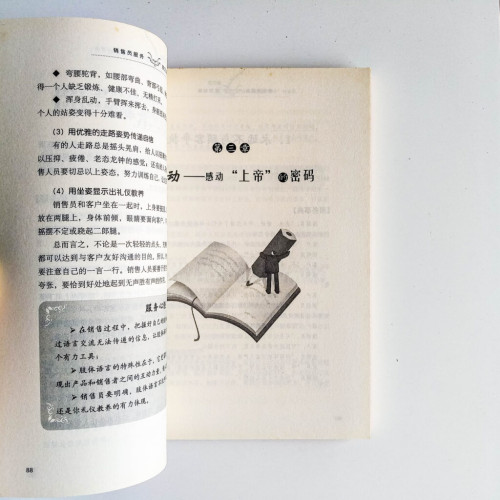 销售员服务
◆ 弯腰驼背，如腰部弯曲、背部
得一个人缺乏锻炼、健康不佳、无精打
◆ 浑身乱动，手臂挥来挥去，
个人的站姿变得十分难看。
（3）用优雅的走路姿势传递
有的人走路总是摇头晃肩，给人
以压抑、疲倦、老态龙钟的感觉，还
售人员要切忌以上姿态，努力训练自己，
（4）用坐姿显示出礼仪教养
销售员和客户坐在一起时，上身
放在两腿上，身体前倾，眼睛要面向客户，
摇摆不定或跷起二郎腿。
总而言之，不论是一次轻轻的点头、
都可以达到与客户友好沟通的目的。所以，
要注意自己的一言一行。销售人员要善于
夸张，要恰到好处地起到无声胜有声的
服务心
➢ 在销售过程中，把握好自己的
过语言交流无法传递的信息，让
个有力工具；
➢ 肢体语言的特殊性在于，它
现出产品和销售者之间的互动力量，
➢ 销售员要明确，肢体语言
还是你礼仪教养的有力体现。
88
第三章
动——感动“上帝”的密码